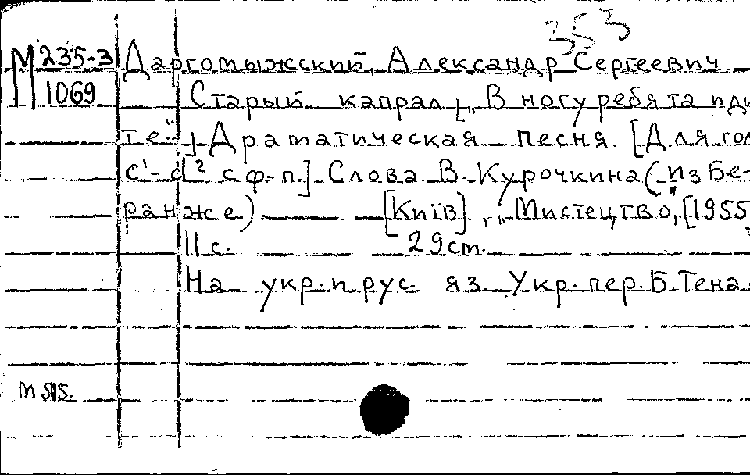 353
М 235-3 Даргомыжский, Александр Сергеевич
1069 Старый капрал [„В ногу ребята иди
те"] Драматическая песня. [Для гол
c¹-d² с ф.-п.] Слова В. Курочкина (из Бе-
ранже) [Київ], „Мистецтво", [1955]
11 с. 29 cm.
На укр. и рус. яз. Укр. пер. Б. Тена.